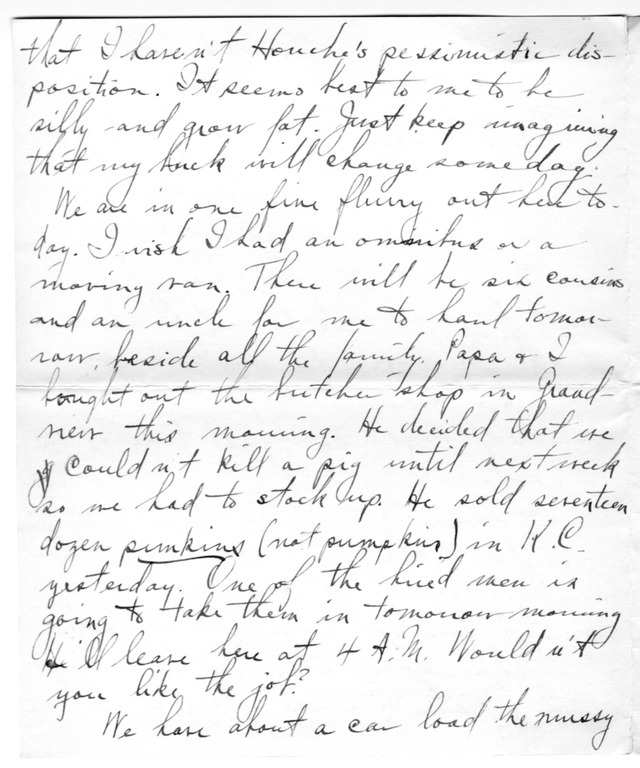 that I haven't Houche's pessimistic dis-
position. It seems best to me to be
silly and grow fat. Just keep imagining
that my luck will change some day.
We are in one fine flurry out here to-
day. I wish I had an omnibus or a
moving van. There will be six cousins
and an uncle for me to haul tomor-
row, beside all the family. Papa & I
bought out the butcher shop in Grand-
view this morning. He decided that we
couldn't kill a pig until next week
so we had to stock up. He sold seventeen
dozen punkins (not pumpkins) in K.C.
yesterday. One of the hired men is
going to take them in tomorrow morning
He'll leave here at 4 A.M. Wouldn't
you like the job?
We have about a car load the mussy